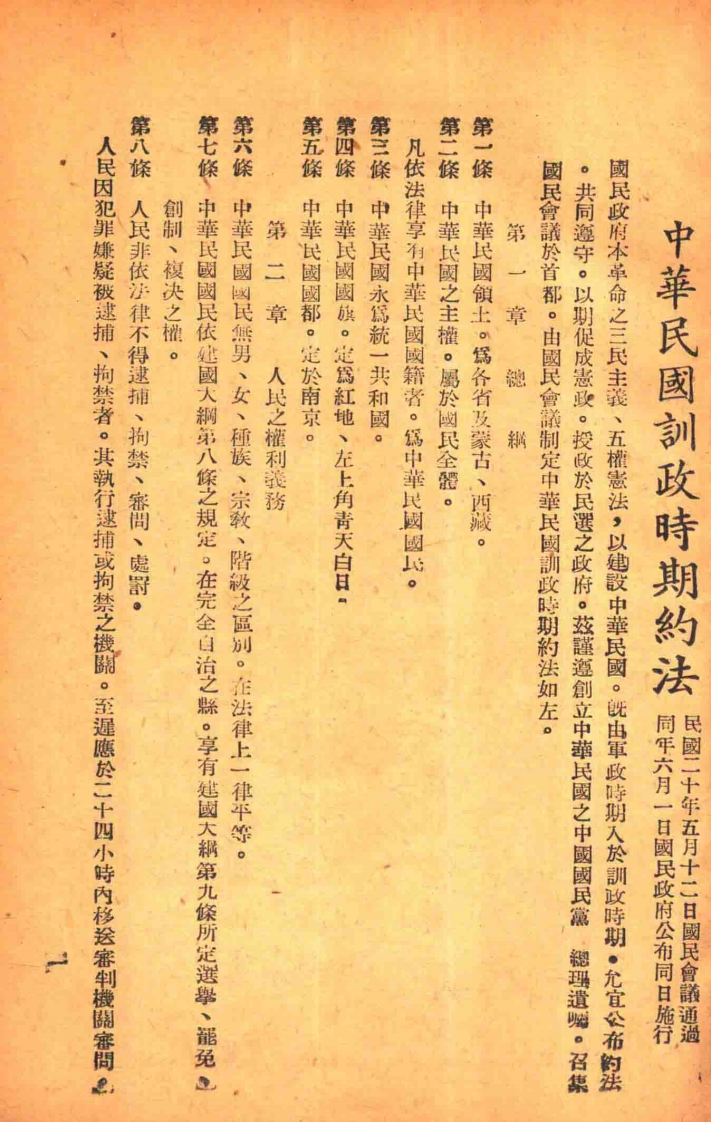 中華民國訓政時期約法
民國二十年五月十二日國民會議通過
同年六月一日國民政府公布同日施行
國民政府本革命之三民主義、五權憲法，以建設中華民國。既由軍政時期入於訓政時期。允宜公布約法
。共同遵守。以期促成憲政。授政於民選之政府。茲謹遵創立中華民國之中國國民黨　總理遺囑。召集
國民會議於首都。由國民會議制定中華民國訓政時期約法如左。
第一章　總綱
第一條　中華民國領土。爲各省及蒙古、西藏。
第二條　中華民國之主權。屬於國民全體。
凡依法律享有中華民國國籍者。爲中華民國國民。
第三條　中華民國永爲統一共和國。
第四條　中華民國國旗。定爲紅地、左上角青天白日。
第五條　中華民國國都。定於南京。
第二章　人民之權利義務
第六條　中華民國國民無男、女、種族、宗教、階級之區別。在法律上一律平等。
第七條　中華民國國民依建國大綱第八條之規定。在完全自治之縣。享有建國大綱第九條所定選舉、罷免、
創制、複决之權。
第八條　人民非依法律不得逮捕、拘禁、審問、處罸。
人民因犯罪嫌疑被逮捕、拘禁者。其執行逮捕或拘禁之機關。至遲應於二十四小時內移送審判機關審問。
1